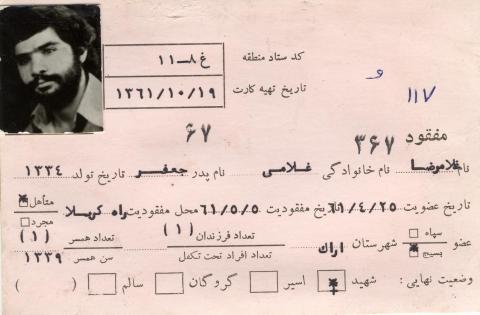 کد ستاد منطقه غ ۸-۱۱
تاریخ تهیه کارت ۱۳۶۱/۱۰/۱۹
و ۱۱۷
مفقود ۳۶۷ ۶۷
نام غلامرضا نام خانوادگی غلامی نام پدر جعفر تاریخ تولد ۱۳۳۴
تاریخ عضویت ۶۱/۴/۲۵ تاریخ مفقودیت ۶۱/۵/۵ محل مفقودیت راه کربلا متأهل مجرد
عضو سپاه بسیج شهرستان اراک تعداد فرزندان (۱) تعداد افراد تحت تکفل تعداد همسر (۱) سن همسر ۱۳۳۹
وضعیت نهایی: شهید اسیر گروگان سالم ( )